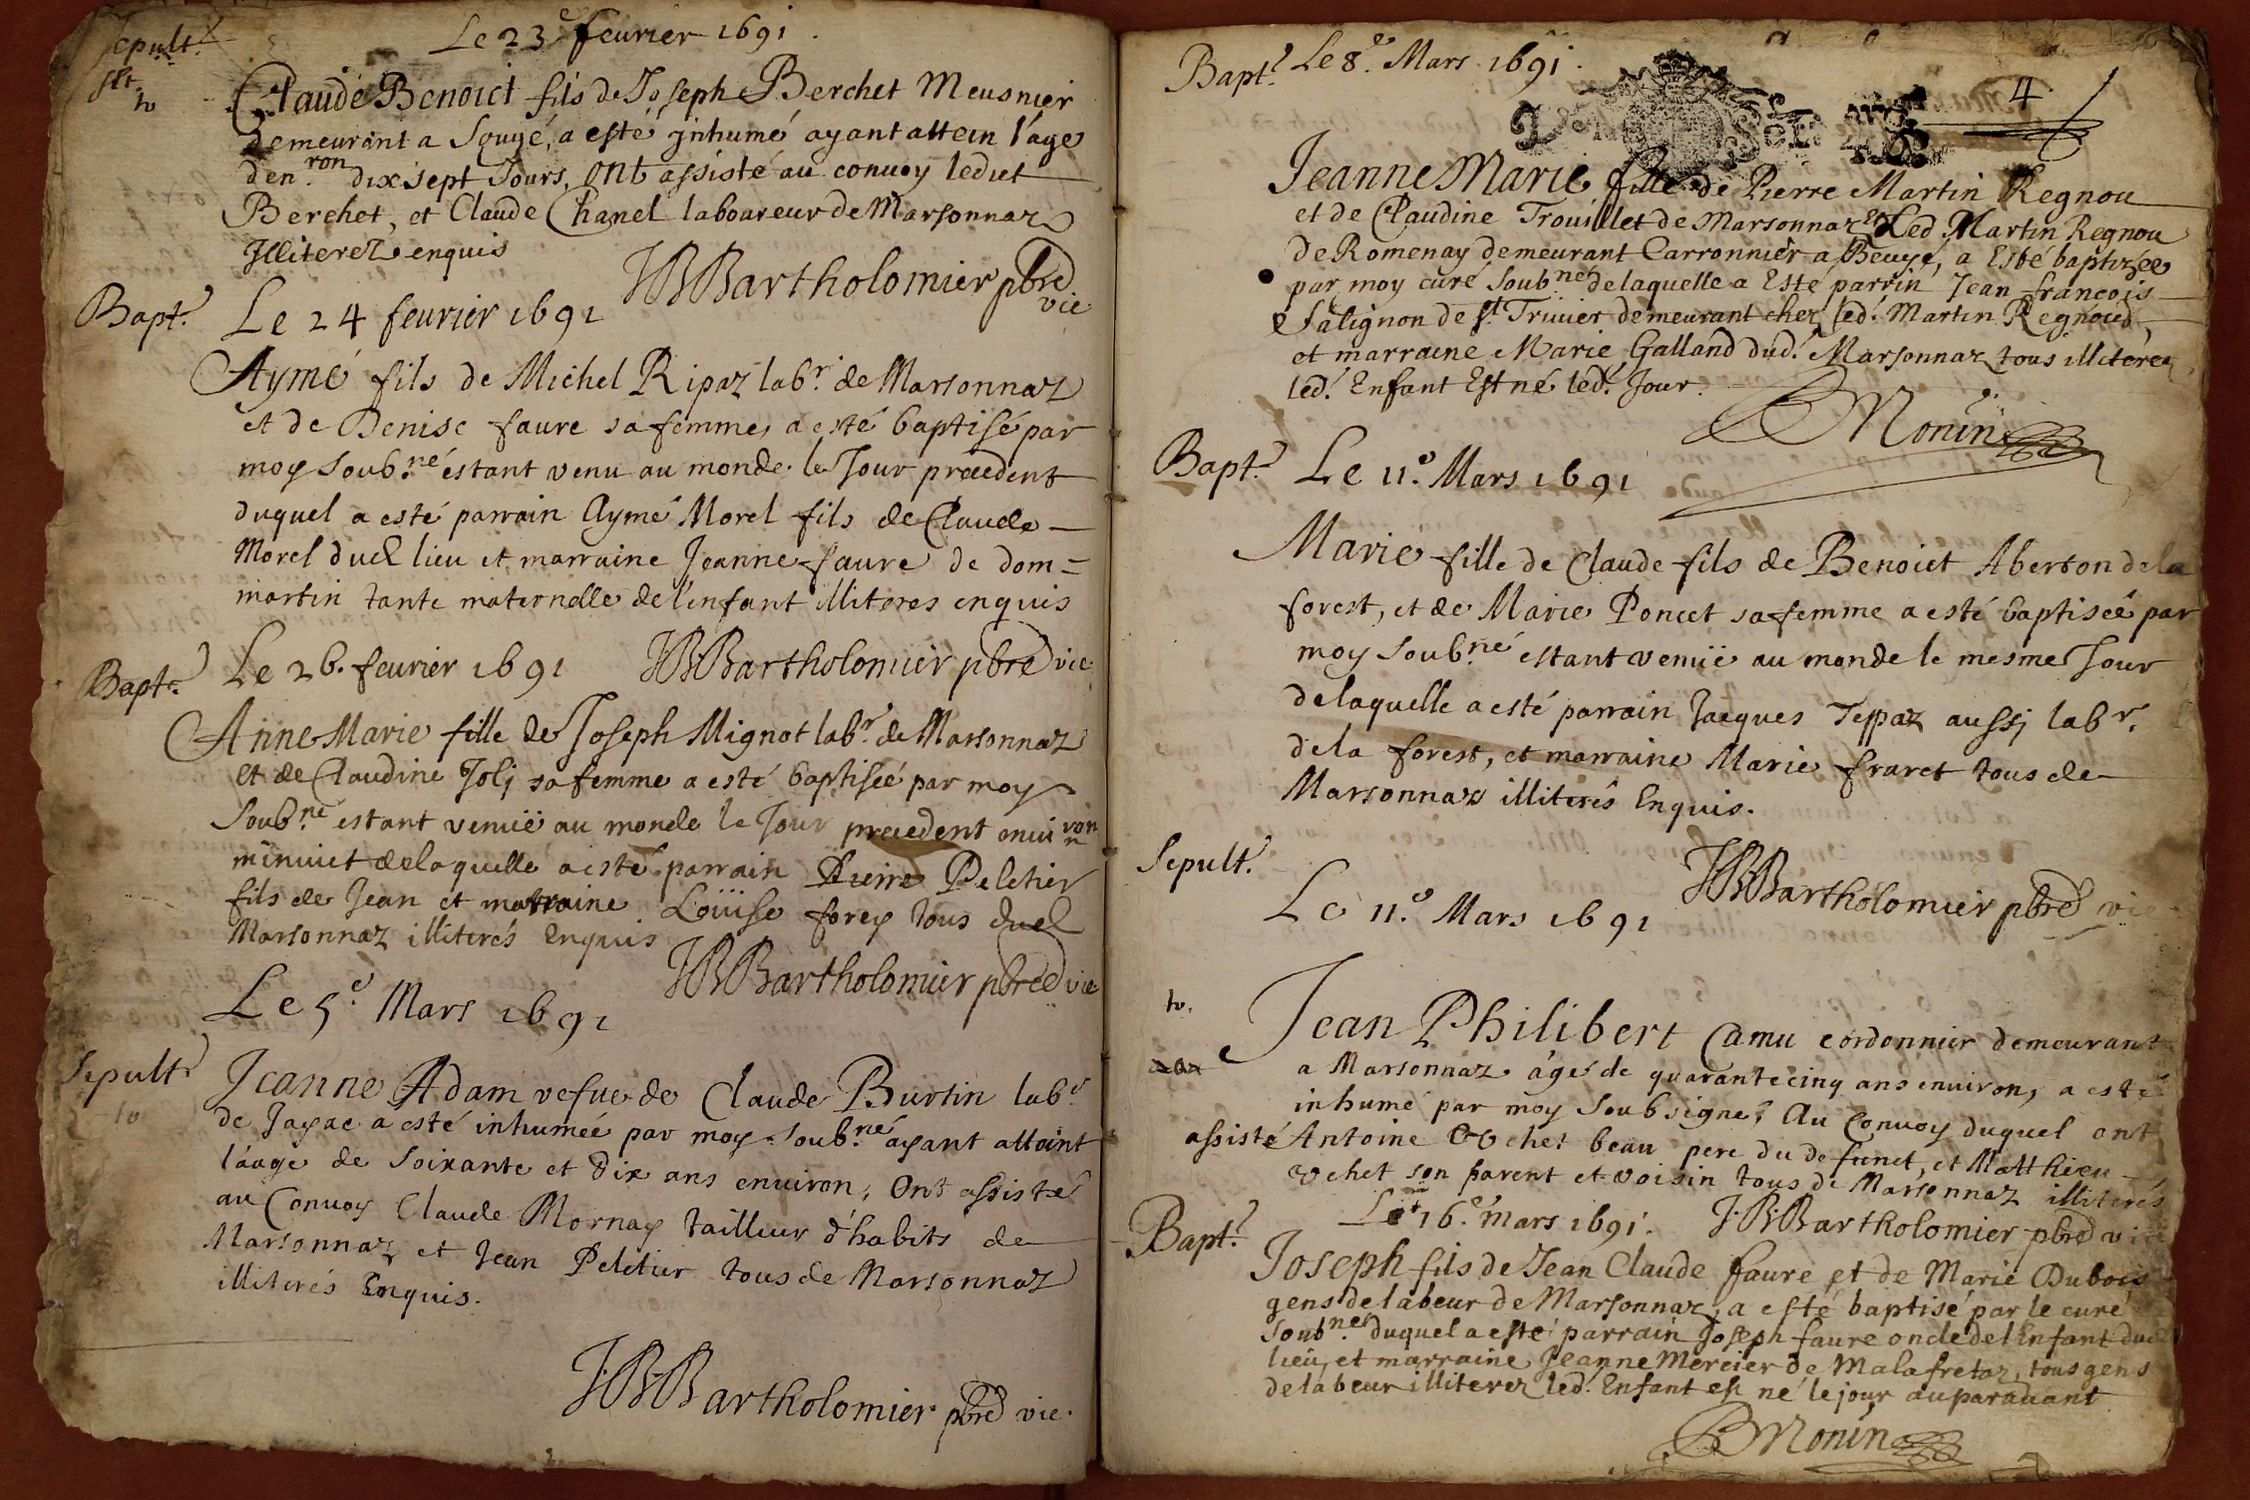 Sepult.
Le 23e feurier 1691.
to
Claude Benoict fils de Joseph Berchet Meusnier
demeurant a Sougé, a esté jnhumé ayant attein l'age
d'en.ron dix sept Jours, ont assisté au conuoy ledict
Berchet, et Claude Chanel laboareur de Marsonnaz
Jlliterez enquis
JBBartholomier pbre vic
Bapt.
Le 24 feurier 1691
Aymé fils de Michel Ripaz labr. de Marsonnaz
et de Denise faure sa femme, a esté baptisé par
moy soub.né estant venu au monde le Jour precedent
duquel a esté parrain Aymé Morel fils de Claude
Morel dud lieu et marraine Jeanne faure de dom=
martin tante maternelle de l'enfant illiteres enquis
JBBartholomier pbre vic
Bapt.
Le 26. feurier 1691
Anne Marie fille de Joseph Mignot labr. de Marsonnaz
et de Claudine Jolj sa femme a esté baptiseé par moy
soub.né estant venuë au monde le Jour precedent enuiron
minuict de laquelle a esté parrain Pierre Peletier
fils de Jean et marraine Loüise forey tous dud
Marsonnaz illiterés Enquis
JBBartholomier pbre vic
Le 5.e Mars 1691
Sepult.
to
Jeanne Adam vefue de Claude Burtin labr.
de Jayac a esté inhumeé par moy soub.né ayant attaint
l'aage de soixante et dix ans enuiron, Ont assisté
au Conuoy Claude Mornay tailleur d'habits de
Marsonnaz et Jean Peletier tous de Marsonnaz
illiterés Enquis.
JBBartholomier pbre vic.
Bapt.
Le 8.e Mars 1691.
4
Jeanne Marie fille de Pierre Martin Regnou
et de Claudine Trouillet de Marsonnaz Led. Martin Regnou
de Romenay demeurant Carronnier a, a Esté baptizeé
par moy curé soub.né de laquelle a Esté parrin Jean françois
Salignon de st. Triuier demeurant chez led. Martin Regnoud,
et marraine Marie Galland dud. Marsonnaz tous illiterez
led. Enfant Est né led. Jour.
Monin
Bapt.
Le 11.e Mars 1691
Marie fille de Claude fils de Benoict Aberton de la
forest, et de Marie Poncet sa femme a esté baptiseé par
moy soub.né estant venuë au monde le mesme Jour
de laquelle a esté parrain Jacques Teppaz aussj labr.
de la forest, et marraine Marie fraret tous de
Marsonnaz illiterés Enquis.
JBBartholomier pbre vic
Sepult.
Le 11.e Mars 1691
to.
Jean Philibert Camu cordonnier demeurant
a Marsonnaz âgé de quarante cinq ans enuiron, a esté
inhumé par moy soubsigné, Au Conuoy duquel ont
assisté Antoine Vechet beau pere du defunct, et Matthieu
Vechet son parent et voisin tous de Marsonnaz illiterés
J.B.Bartholomier pbre vic
Bapt.
Le 16.e mars 1691.
Joseph fils de Jean Claude faure et de Marie Dubois
gens de labeur de Marsonnaz, a esté baptisé par le curé
soub.né duquel a esté parrain Joseph faure oncle de l Enfant dud
lieu, et marraine Jeanne Mercier de Malafretaz, tous gens
de labeur illiterez led. Enfant est né le jour auparauant
Monin